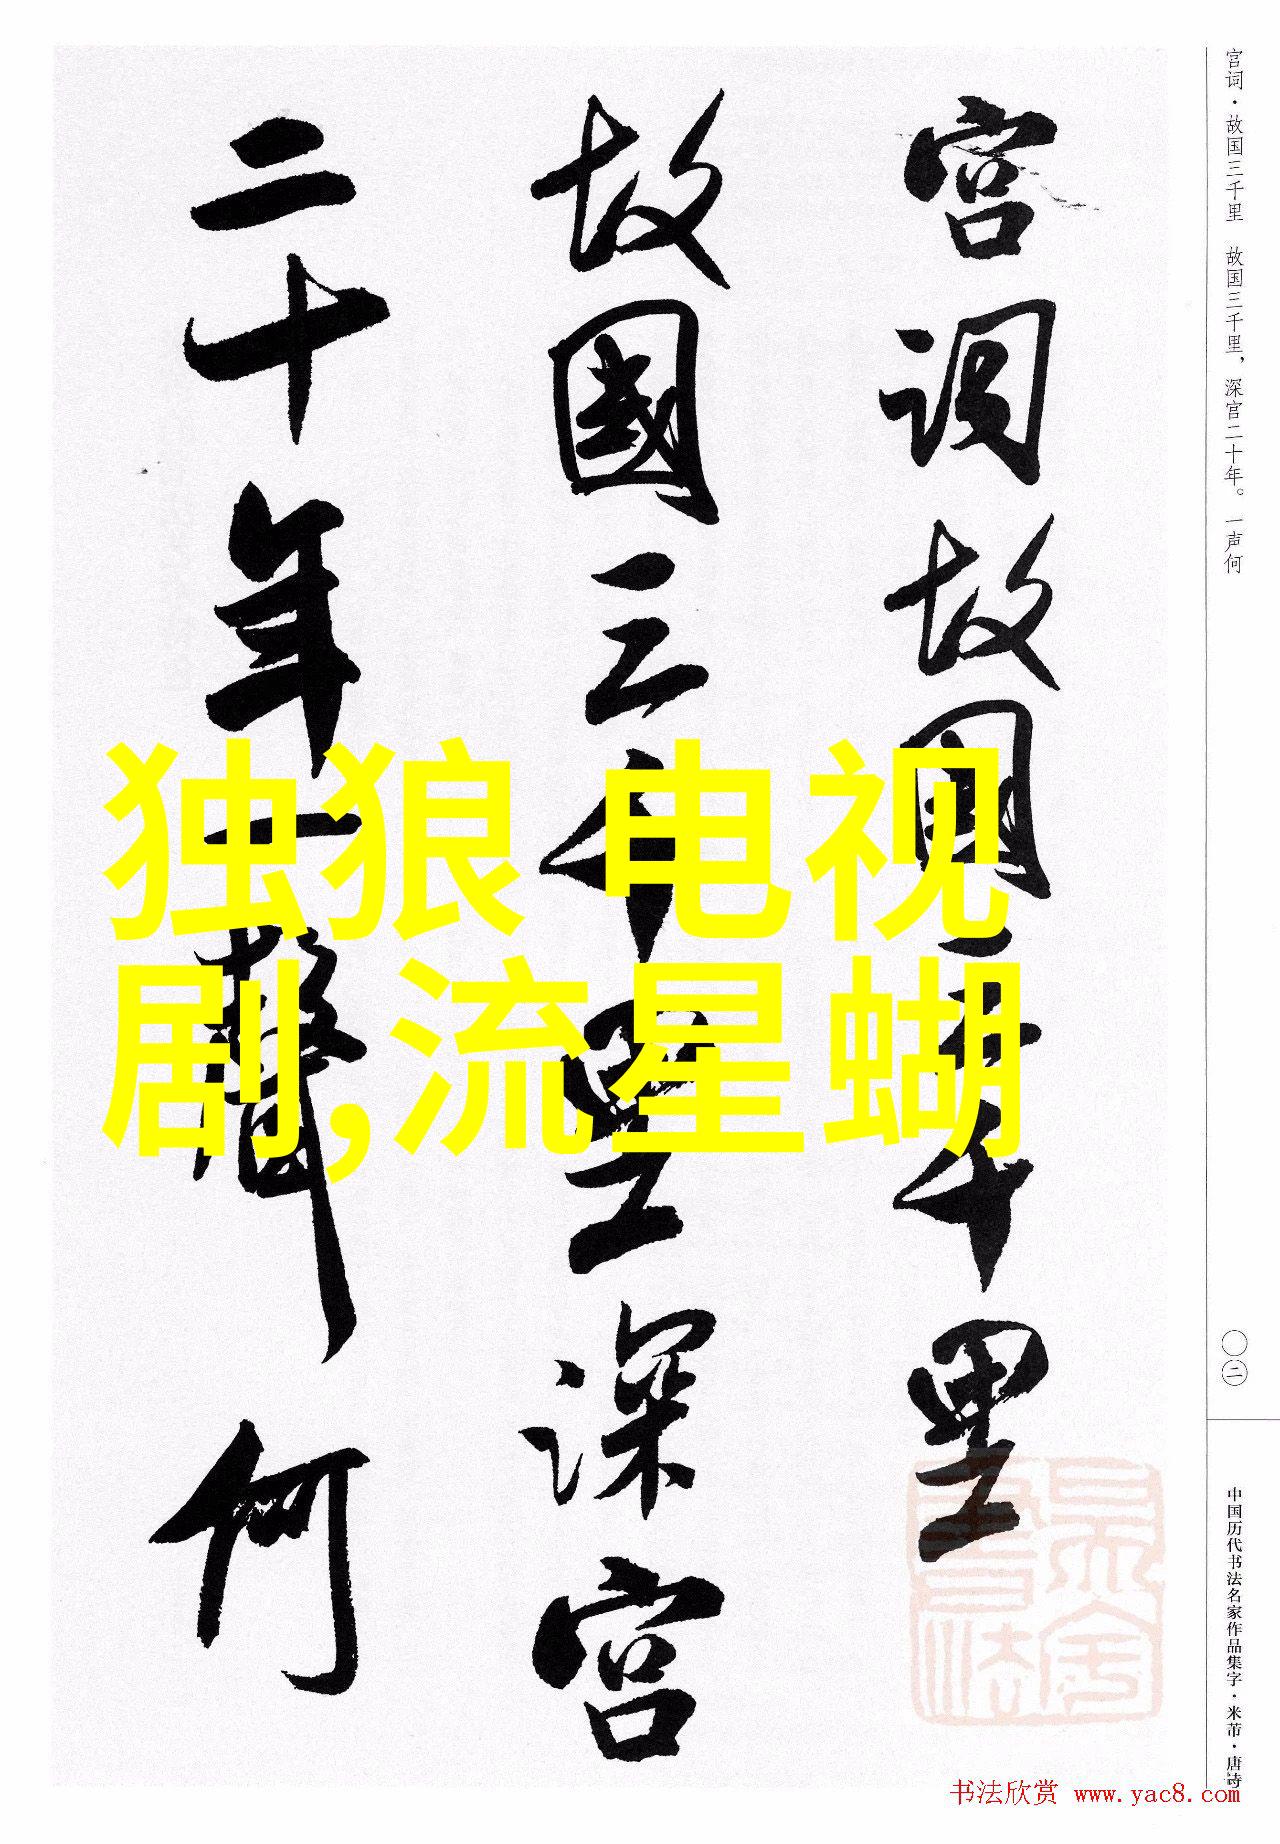 宫词·故国三千里 故国三千里，深宫二十年。一声何
宫词故国三千里
故國三千里深宫
二十年一聲何
独狼 电视
剧,流星蝴
〇二
中国历代书法名家作品集字·米芾·唐诗
书法欣赏 www.yac8.com